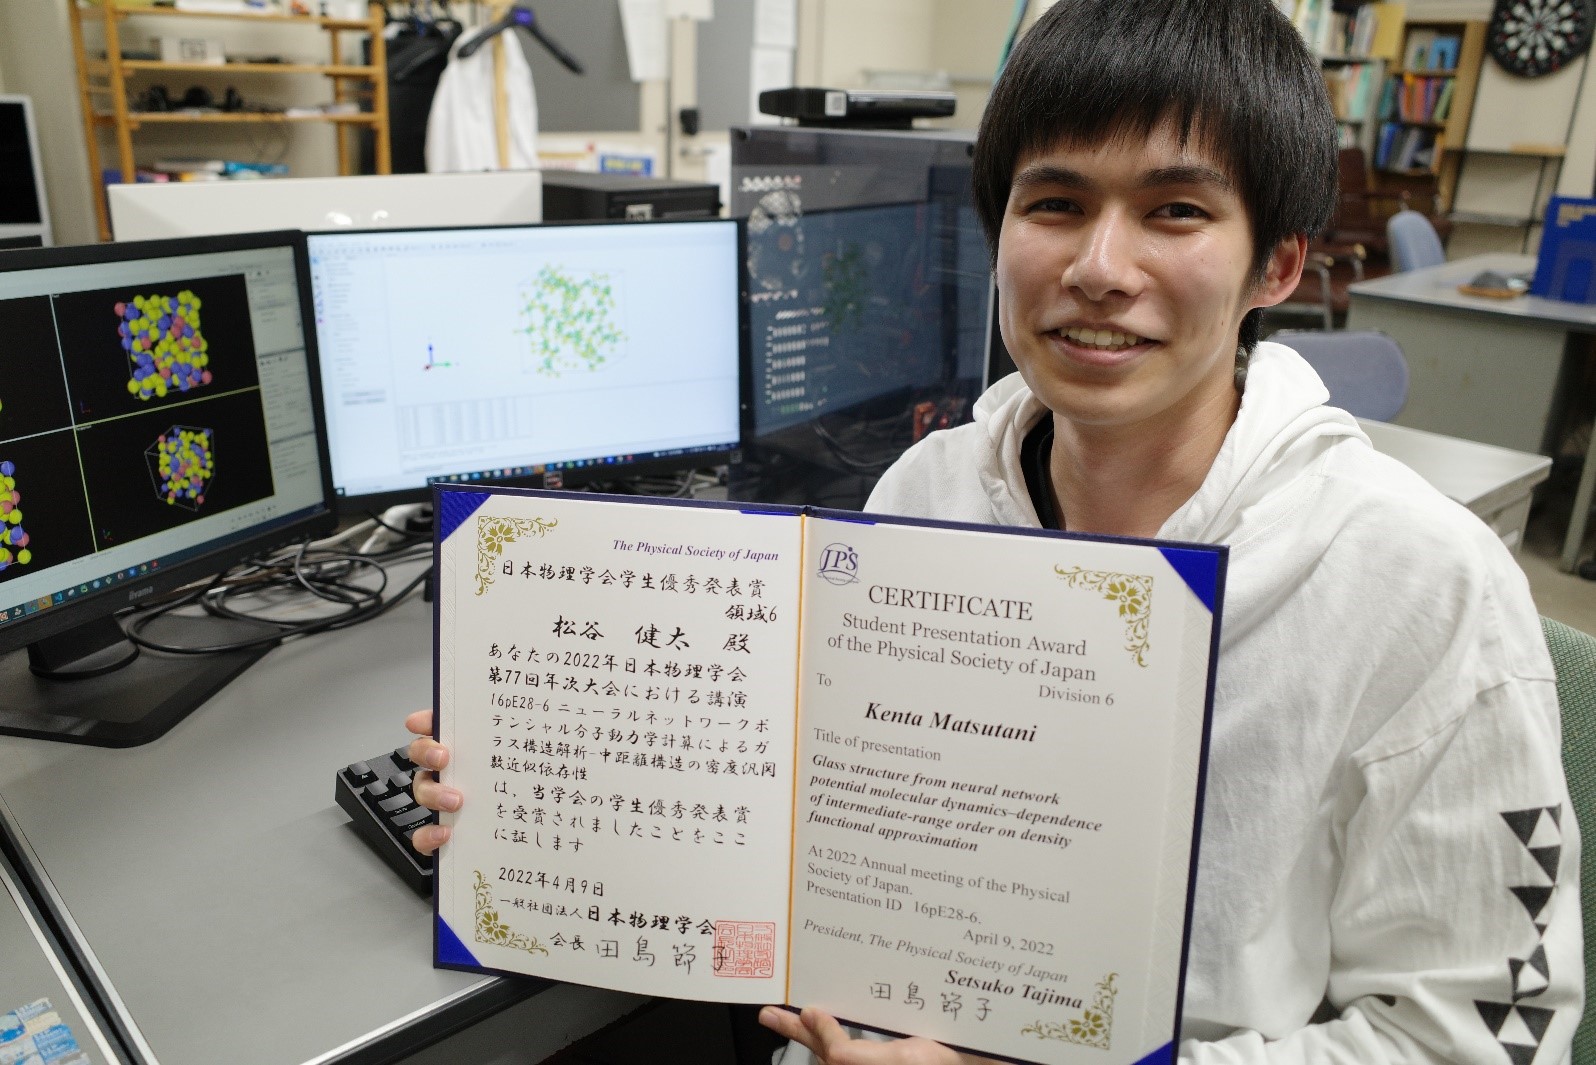 The Physical Society of Japan
日本物理学会学生優秀発表賞
領域6
松谷 健太 殿
あなたの2022年日本物理学会
第77回年次大会における講演
16pE28-6 ニューラルネットワークポ
テンシャル分子動力学計算によるガ
ラス構造解析-中距離構造の密度汎関
数近似依存性
は、当学会の学生優秀発表賞
を受賞されましたことをここ
に証します
2022年4月9日
一般社団法人日本物理学会
会長 田島節子
JPS
CERTIFICATE
Student Presentation Award
of the Physical Society of Japan
Division 6
To
Kenta Matsutani
Title of presentation
Glass structure from neural network
potential molecular dynamics–dependence
of intermediate-range order on density
functional approximation
At 2022 Annual meeting of the Physical
Society of Japan.
Presentation ID 16pE28-6.
April 9, 2022
President, The Physical Society of Japan
Setsuko Tajima
田島節子
iiyama